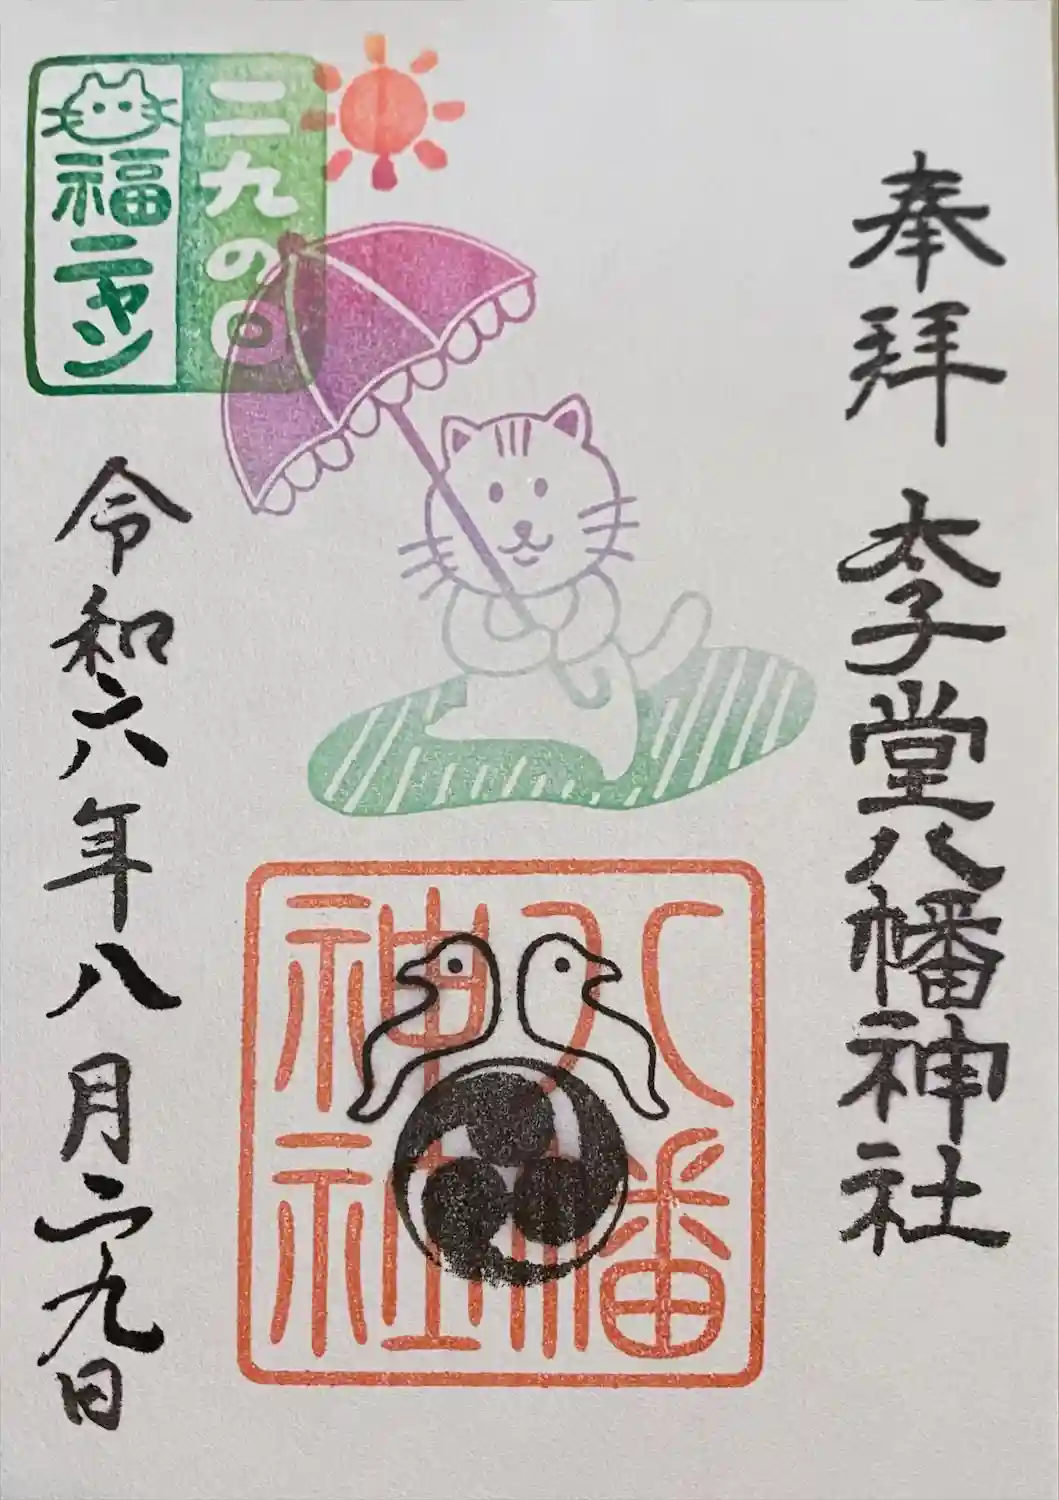 奉拝 太子堂八幡神社
二九の日
福ニャン
八幡
神社
令和六年八月二十九日